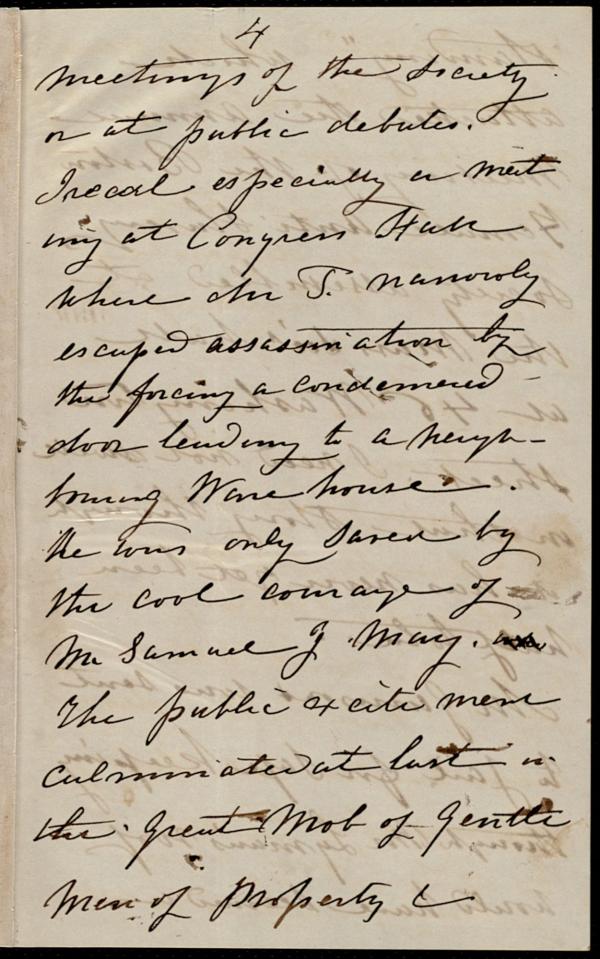 4
meetings of the Society
or at public debates.
I recal especially a meet
ing at Congress Hall
where Mr T. narrowly
escaped assassination by
the forcing a condemned
door leading to a neigh-
bouring Ware house.
He was only saved by
the cool courage of
Mr Samuel J. May.
The public excitement
culminated at last in
the great Mob of Gentle
men of Property &